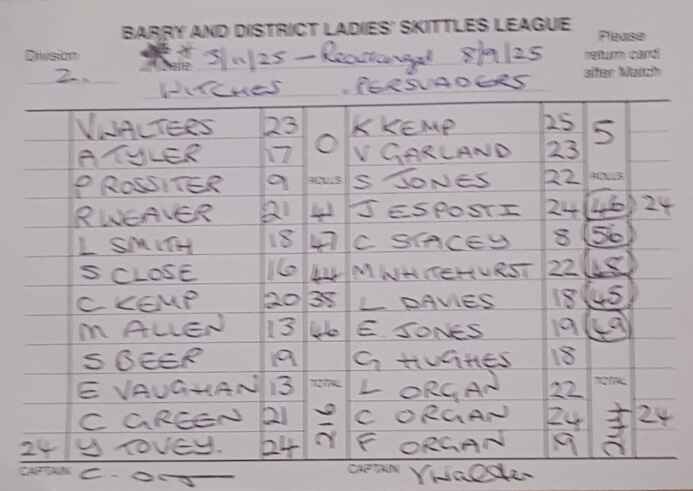 BARRY AND DISTRICT LADIES' SKITTLES LEAGUE
Division 2. Date 3/11/25 - Rearranged 8/9/25 Please return card after Match
WITCHES PERSUADERS
V WALTERS 23 0 K KEMP 25 5
A TYLER 17 V GARLAND 23
P ROSSITER 9 ROLLS S JONES 22 ROLLS
R WEAVER 21 41 J ESPOSTI 24 46 24
L SMITH 18 47 C STACEY 8 56
S CLOSE 16 44 M WHITEHURST 22 48
C KEMP 20 38 L DAVIES 18 45
M ALLEN 13 46 E JONES 19 49
S BEER 19 G HUGHES 18
E VAUGHAN 13 TOTAL L ORGAN 22 TOTAL
C GREEN 21 216 C ORGAN 24 244 24
24 Y TOVEY. 24 F ORGAN 19
CAPTAIN CAPTAIN VWalters